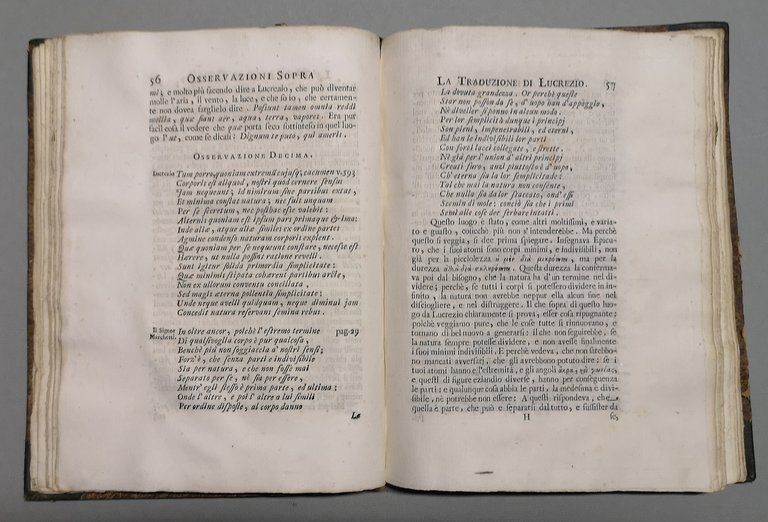 56 OSSERVAZIONI SOPRA
mi; e molto più facendo dire a Lucrezio, che può diventar
molle l'aria, il vento, la luce, e che so io, che certamen-
te non dovea farglielo dire. Possunt tamen omnia reddi
mollia, quæ fiant aer, aqua, terra, vapores. Era pur
facil cosa il vedere che quæ porta seco sottinteso in quel luo-
go l'ut, come se dicasi: Dignum te puto, qui ameris.
OSSERVAZIONE DECIMA.
Lucrezio Tum porro, quoniam extremũ cujusq; cacumen v.593
Corporis est aliquod, nostri quod cernere sensus
Jam nequeunt; id nimirum sine partibus extat,
Et minima constat natura; nec fuit unquam
Per se secretum, nec posthac esse valebit:
Alterius quoniam est ipsum pars primaque & ima:
Inde aliæ, atque aliæ similes ex ordine partes
Agmine condenso naturam corporis explent.
Quæ quoniam per se nequeunt constare, necesse est
Hærere, ut nulla possint ratione revelli.
Sunt igitur solida primordia simplicitate:
Quæ minimis stipata cohærent partibus arcte,
Non ex ullorum conventu conciliata,
Sed magis æterna pollentia simplicitate:
Unde neque avelli quidquam, neque diminui jam
Concedit natura reservans semina rebus.
Il Signor Marchetti. In oltre ancor, poichè l'estremo termine pag.29
Di qualsivoglia corpo è pur qualcosa,
Benchè più non soggiaccia a' nostri sensi;
Forz'è, che senza parti e indivisibile
Sia per natura, e che non fosse mai
Separato per se, nè sia per essere,
Mentr' egli stesso è prima parte, ed ultima;
Onde l'altre, e poi l'altre a lui simili
Per ordine disposte, al corpo danno
La
LA TRADUZIONE DI LUCREZIO. 57
La dovuta grandezza. Or perchè queste
Star non posson da se, d'uopo han d'appoggio,
Nè distoller si ponno in alcun modo.
Per lor semplicità dunque i principj
Son pieni, impenetrabili, ed eterni,
Ed han le indivisibili lor parti
Con forti lacci collegate, e strette.
Nè già per l'union d'altri principj
Creati furo, anzi piuttosto è d'uopo,
Ch' eterna sia la lor semplicitade:
Tal che mai la natura non consente,
Che nulla sia da lor staccato, ond' essi
Scemin di mole: conciò sia che i primi
Semi alle cose dee serbare intatti.
Questo luogo è stato, come altri moltissimi, e varia-
to e guasto, cosicchè più non s'intenderebbe. Ma perchè
questo si veggia, si dee prima spiegare. Insegnava Epicu-
ro, che i suoi atomi son corpi minimi, e indivisibili, non
già per la picciolezza ma per la
durezza Quella durezza la conferma-
va poi dal bisogno, che la natura ha d'un termine nel di-
videre; perchè, se tutti i corpi si potessero dividere in in-
finito, la natura non avrebbe neppur ella alcun fine nel
disciogliere, e nel distruggere. Il che sopra di questo luo-
go da Lucrezio chiaramente si prova, esser cosa ripugnante;
poichè veggiamo pure, che le cose tutte si rinnuovano, e
tornano di bel nuovo a generarsi: il che non seguirebbe, se
la natura sempre potesse dividere, e non avesse finalmente
i suoi minimi indivisibili. E perchè vedeva, che non sarebbo-
no mancati avversarj, che gli avrebbono potuto dire: se i
tuoi atomi hanno e l'estremità, e gli angoli
e questi di figure eziandio diverse, hanno per conseguenza
le parti; e qualunque cosa abbia le parti, la medesima è divi-
sibile, nè potrebbe non essere: A questi rispondeva, che
quella è parte, che può e separarsi dal tutto, e sussister da
H se,